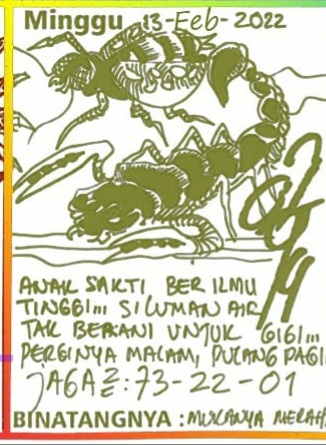 Minggu 13-Feb-2022
ANAK SAKTI BERILMU
TINGGI... SILUMAN AIR
TAK BERANI UNTUK GIGI...
PERGINYA MALAM, PULANG PAGI
JAGA2: 73-22-01
BINATANGNYA : MUKANYA MERAH